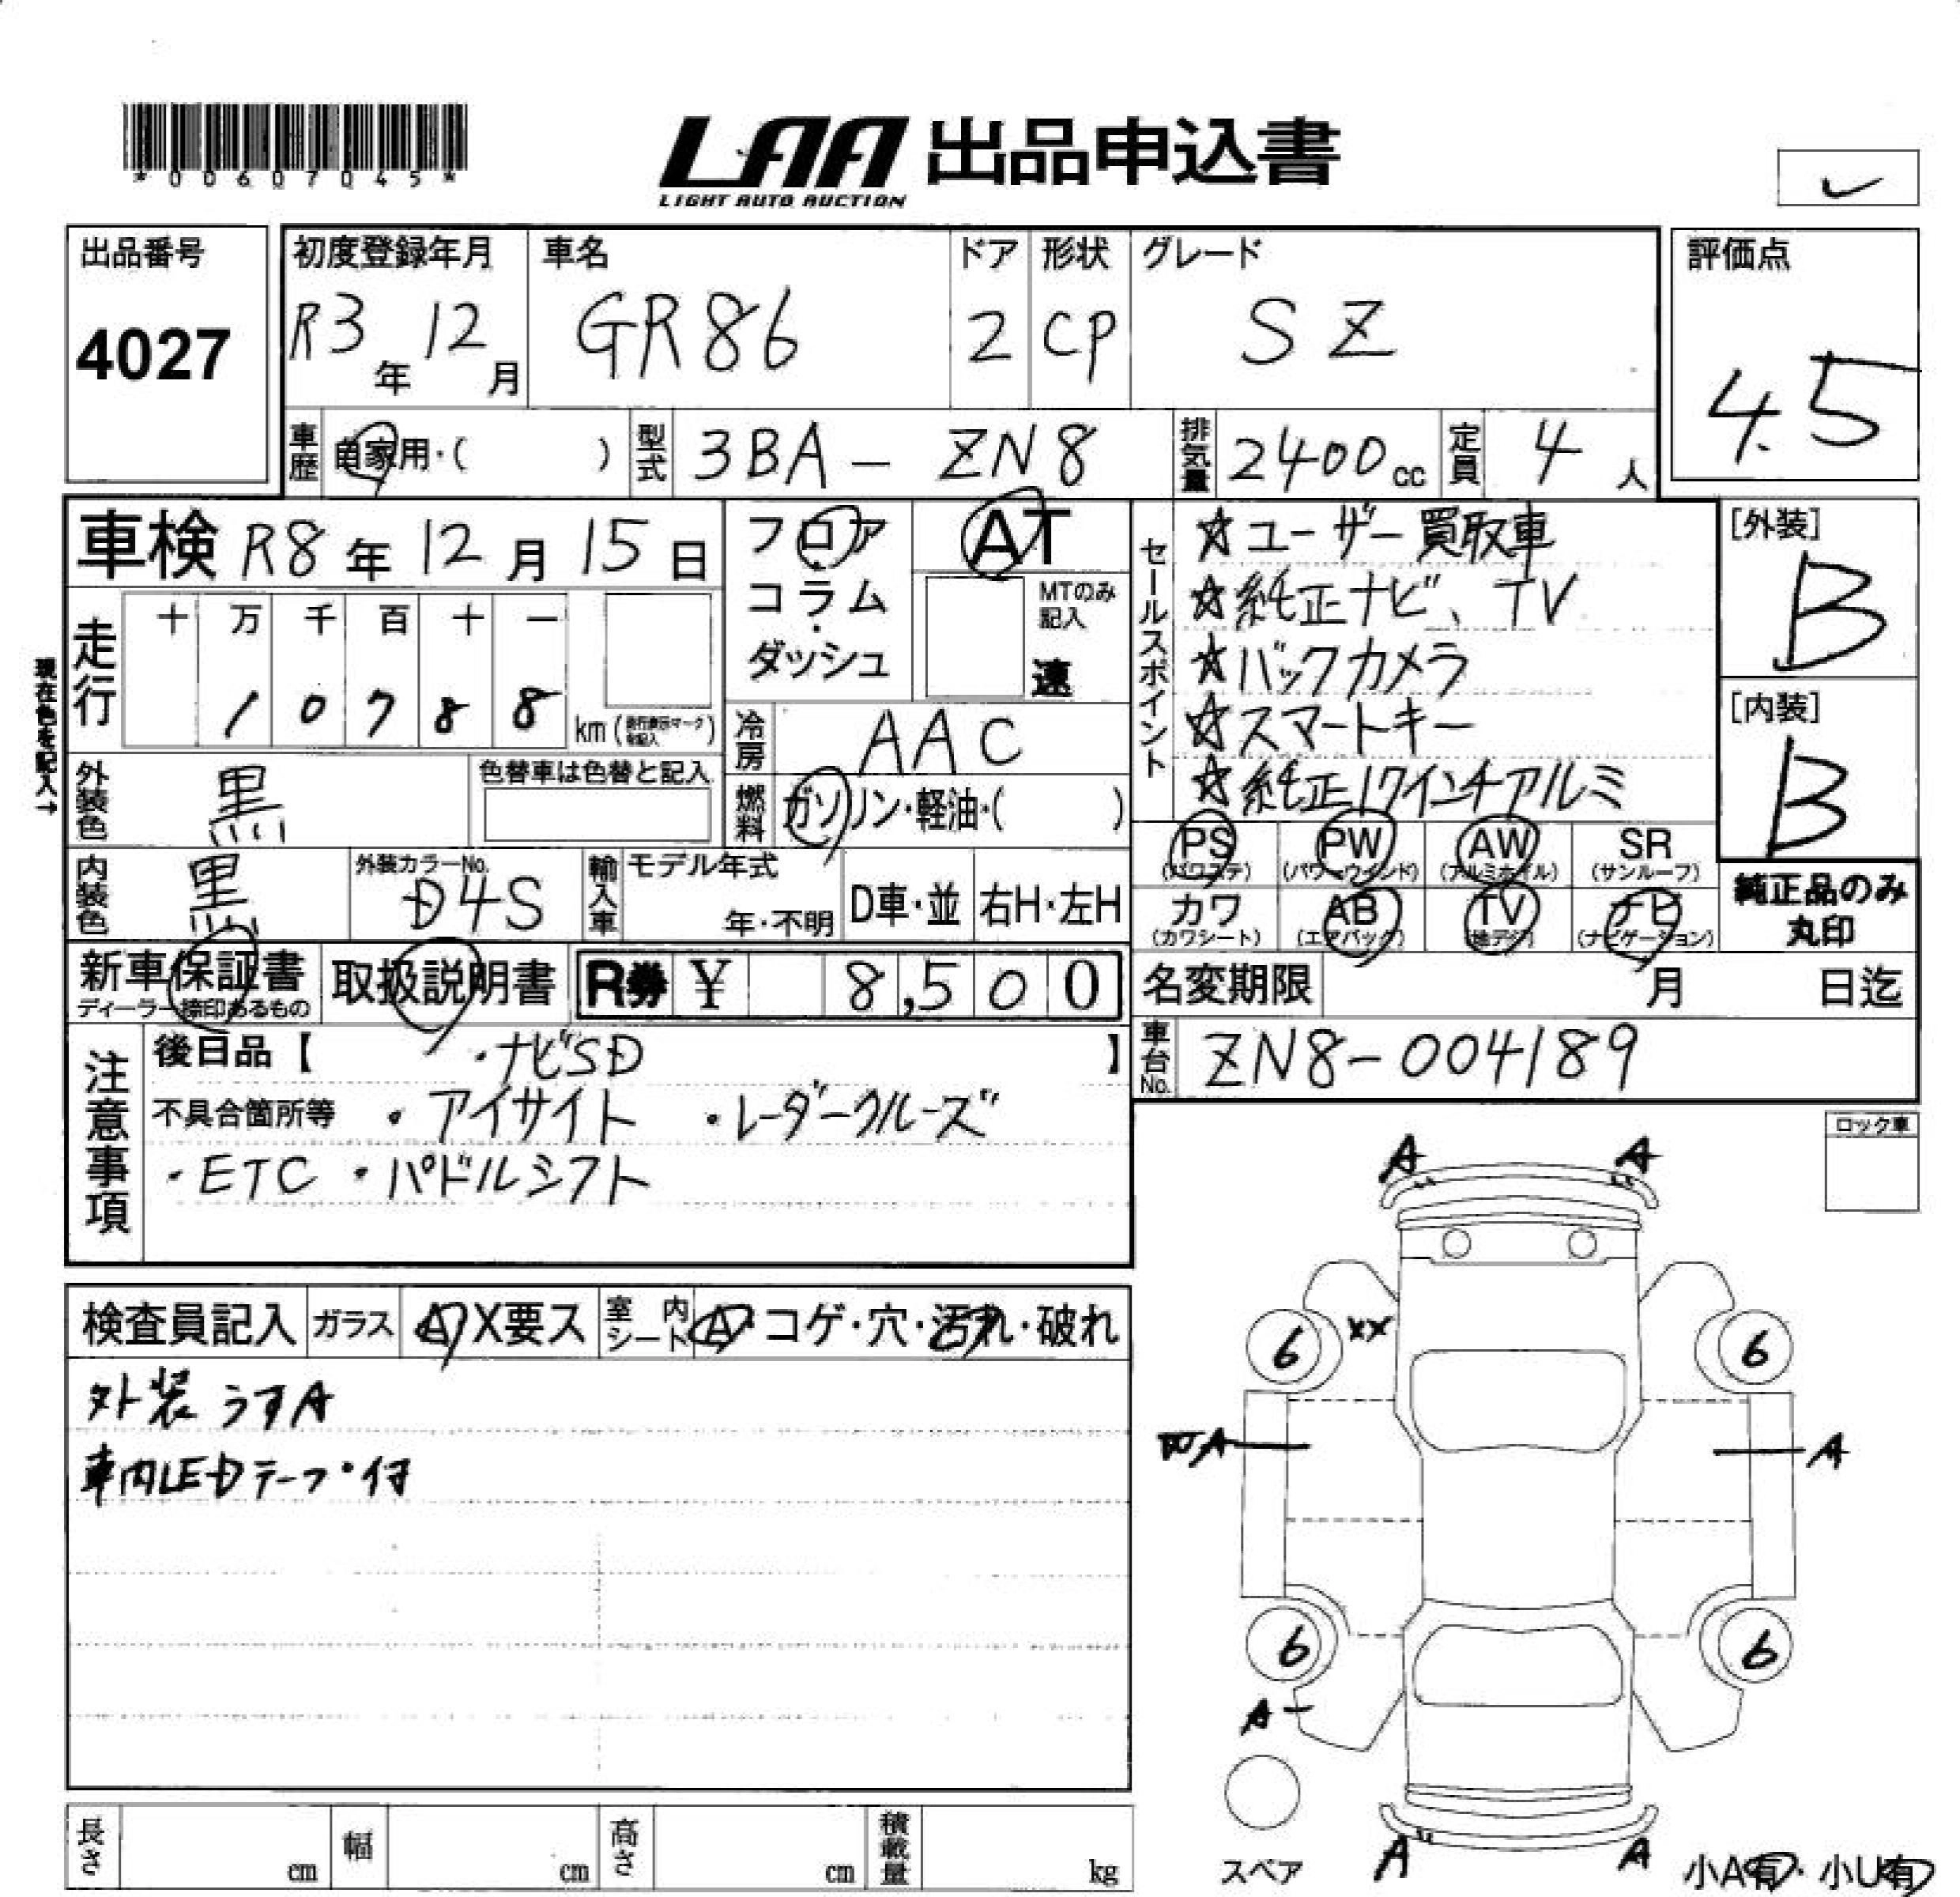 *00607045*
LAA 出品申込書
LIGHT AUTO AUCTION
出品番号 4027
初度登録年月 R3年 12月
車名 GR86
ドア 2
形状 CP
グレード SZ
評価点 4.5
車歴 自家用・( )
型式 3BA - ZN8
排気量 2400cc
定員 4人
車検 R8年12月15日
フロア・コラム・ダッシュ
AT
MTのみ記入
速
セールスポイント
☆ユーザー買取車
☆純正ナビ、TV
☆バックカメラ
☆スマートキー
☆純正17インチアルミ
[外装] B
[内装] B
現在色を記入→
走行 十万千百十一
10788 km
冷房 AAC
外装色 黒
色替車は色替と記入
燃料 ガソリン・軽油・( )
内装色 黒
外装カラーNo. D4S
輸入車 モデル年式 年・不明
D車・並 右H・左H
PS (パワステ) PW (パワーウインド) AW (アルミホイル) SR (サンルーフ)
カワ (カワシート) AB (エアバック) TV (地デジ) ナビ (ナビゲーション)
純正品のみ丸印
新車保証書
ディーラー捺印あるもの
取扱説明書
R券 ¥ 8,500
名変期限 月 日迄
車台No. ZN8-004189
注意事項
後日品【 ・ナビSD 】
不具合箇所等 ・アイサイト ・レーダークルーズ
・ETC ・パドルシフト
ロック車
検査員記入 ガラス A X要ス 室内シート A・コゲ・穴・汚れ・破れ
外装うすA
車内LEDテープ付
A A
XX
6 6
A A
6 6
A
スペア
A A
小A有・小U有
長さ cm 幅 cm 高さ cm 積載量 kg